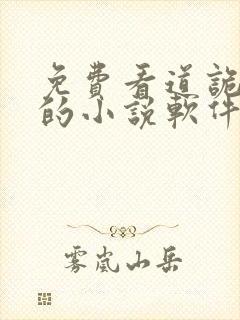 免費看道詭
的小說軟件
雾嵐山岳